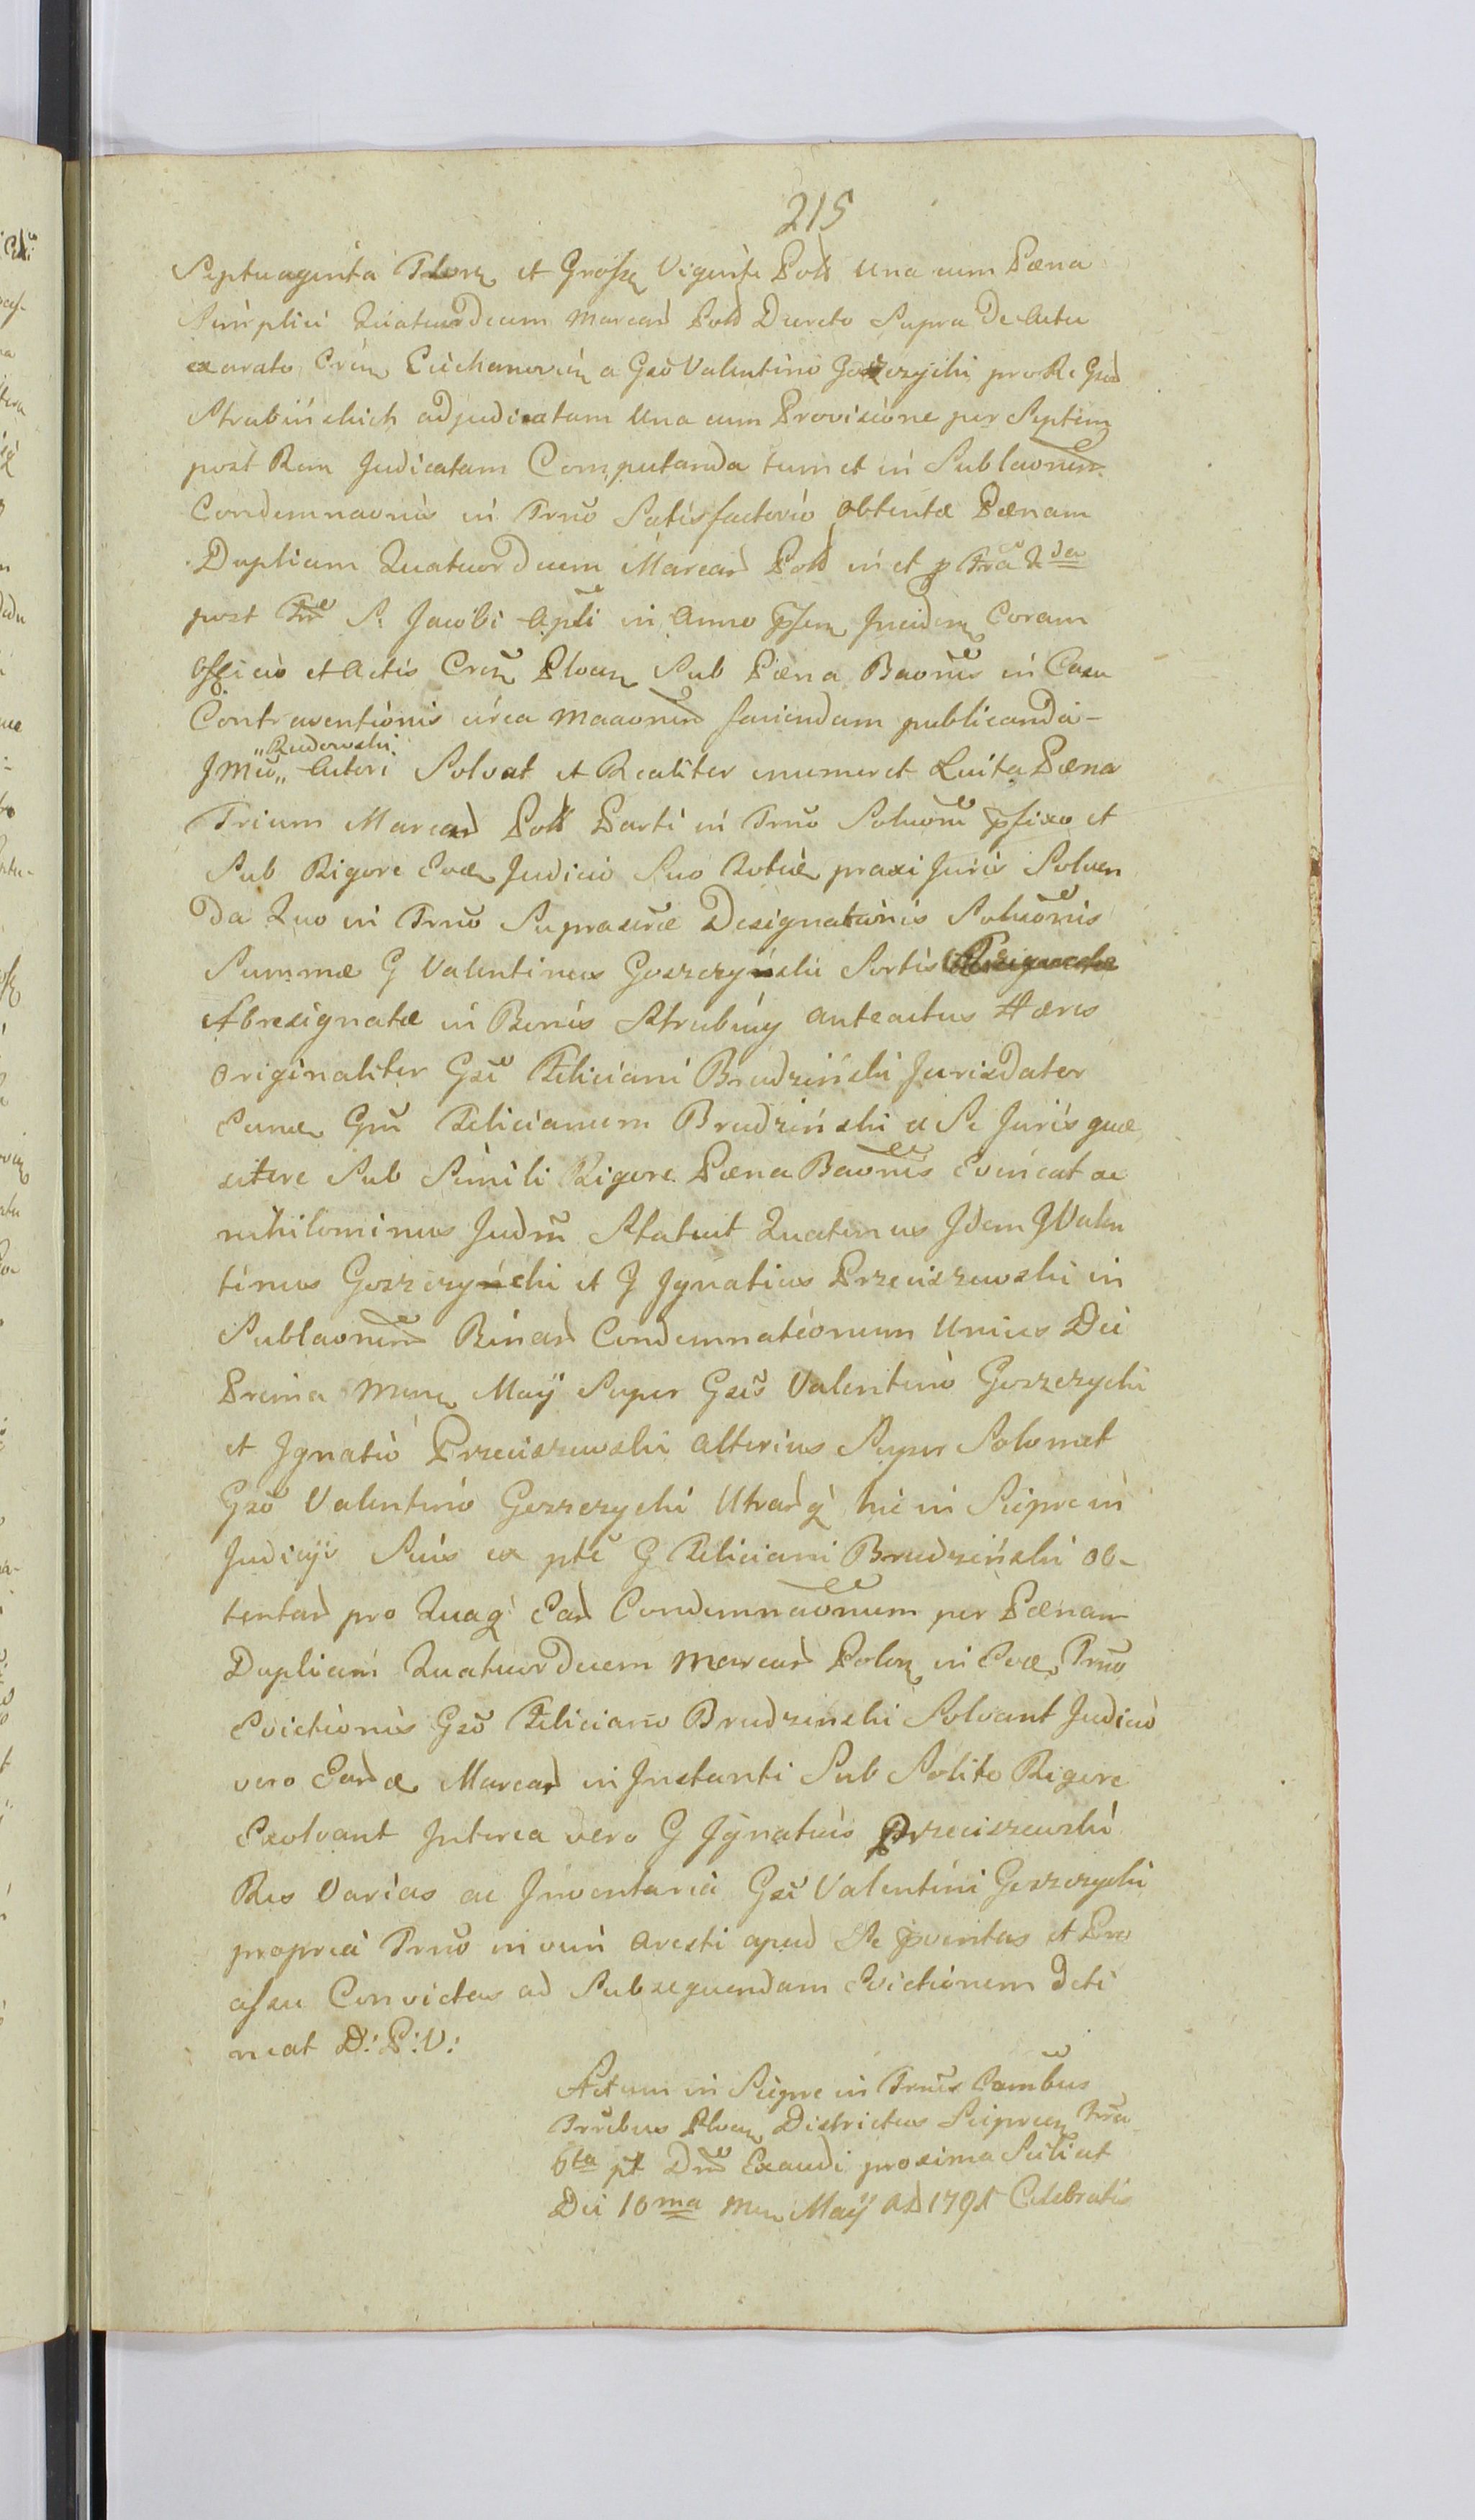 215
Septuaginta Floren et Grossen Viginti Poll una cum Pæna
Simplici Quatuordecim Marcar Poll Decreto Supra De Actu
exarato Cren Ciechanovien a Gso Valentino Goszczycki pro Re Gsor
Strabińskich adjudicatam Una cum Provisione per Septem
post Rem Judicatam Computanda tum et in Sublaonem
Condemnaonis in Trno Satisfactorio obtentæ Pænam
Duplicam Quatuordecim Marcar Poll in et p Fria 2da
post Fm S. Jacobi Apli in Anno pssen Inciden Coram
Officio et Actis Cren Plocen Sub Pæna Baonis in Casu
Contraventionis circa Maaonem faciendam publicanda-
"Rudowski
JMco" Actori Solvat et Realiter enumeret Luita Pæna
Trium Marcar Poll Parti in Trno Soluonis pfixo et
Sub Rigore Eod Judicio Suo praxi Juris Solven
da Quo in Trno Suprascræ Designationis Soluonis
Summæ G Valentinus Goszczyński Sortis
Abresignatæ in Bonis Strubiny anteactus Hæres
Originaliter Gsi Feliciani Brudziński Jurisdator
Eund Gsu Felicianum Brudziński a Se Juris quæ
sitore Sub Simili Rigore Pæna Baonis Evincat ac
nihilominus Judm Statuit Quatenus Idem G Valen
tinus Goszczyński et G Ignatius Przeciszewski in
Sublaonem Binar Condemnationum Unius Die
Prima Mens Maij Super Gsis Valentino Goszczycki
et Ignatio Przeciszewski alterius Super Solomet
Gso Valentino Goszczycki Utrarq hic in Sierpc in
Judicijs Suis ex pte G Feliciani Brudziński ob-
tentar pro Quaq Ear Condemnaonum per Pænam
Duplicam Quatuordecem Marcar Polon in Eod Trno
Evictionis Gso Feliciano Brudzinski Solvant Judicio
vero Eard Marcar in Instanti Sub Solito Rigore
Exolvant Interea vero G Ignatius Przeciszewski
Res Varias ac Inventaria Gsi Valentini Goszczycki
propria Trno in vim Aresti apud Se pventas et Pro
assu Convictas ad Subsequendam Evictionem Deti
neat D: P: V:
Actum in Sierpc in Trnis Combus
Trrebus Plocen Districtus Sierpcen Fria
6ta pt Dm Exaudi proxima Scilicet
Die 10ma Men Maij AD 1791 Celebratis